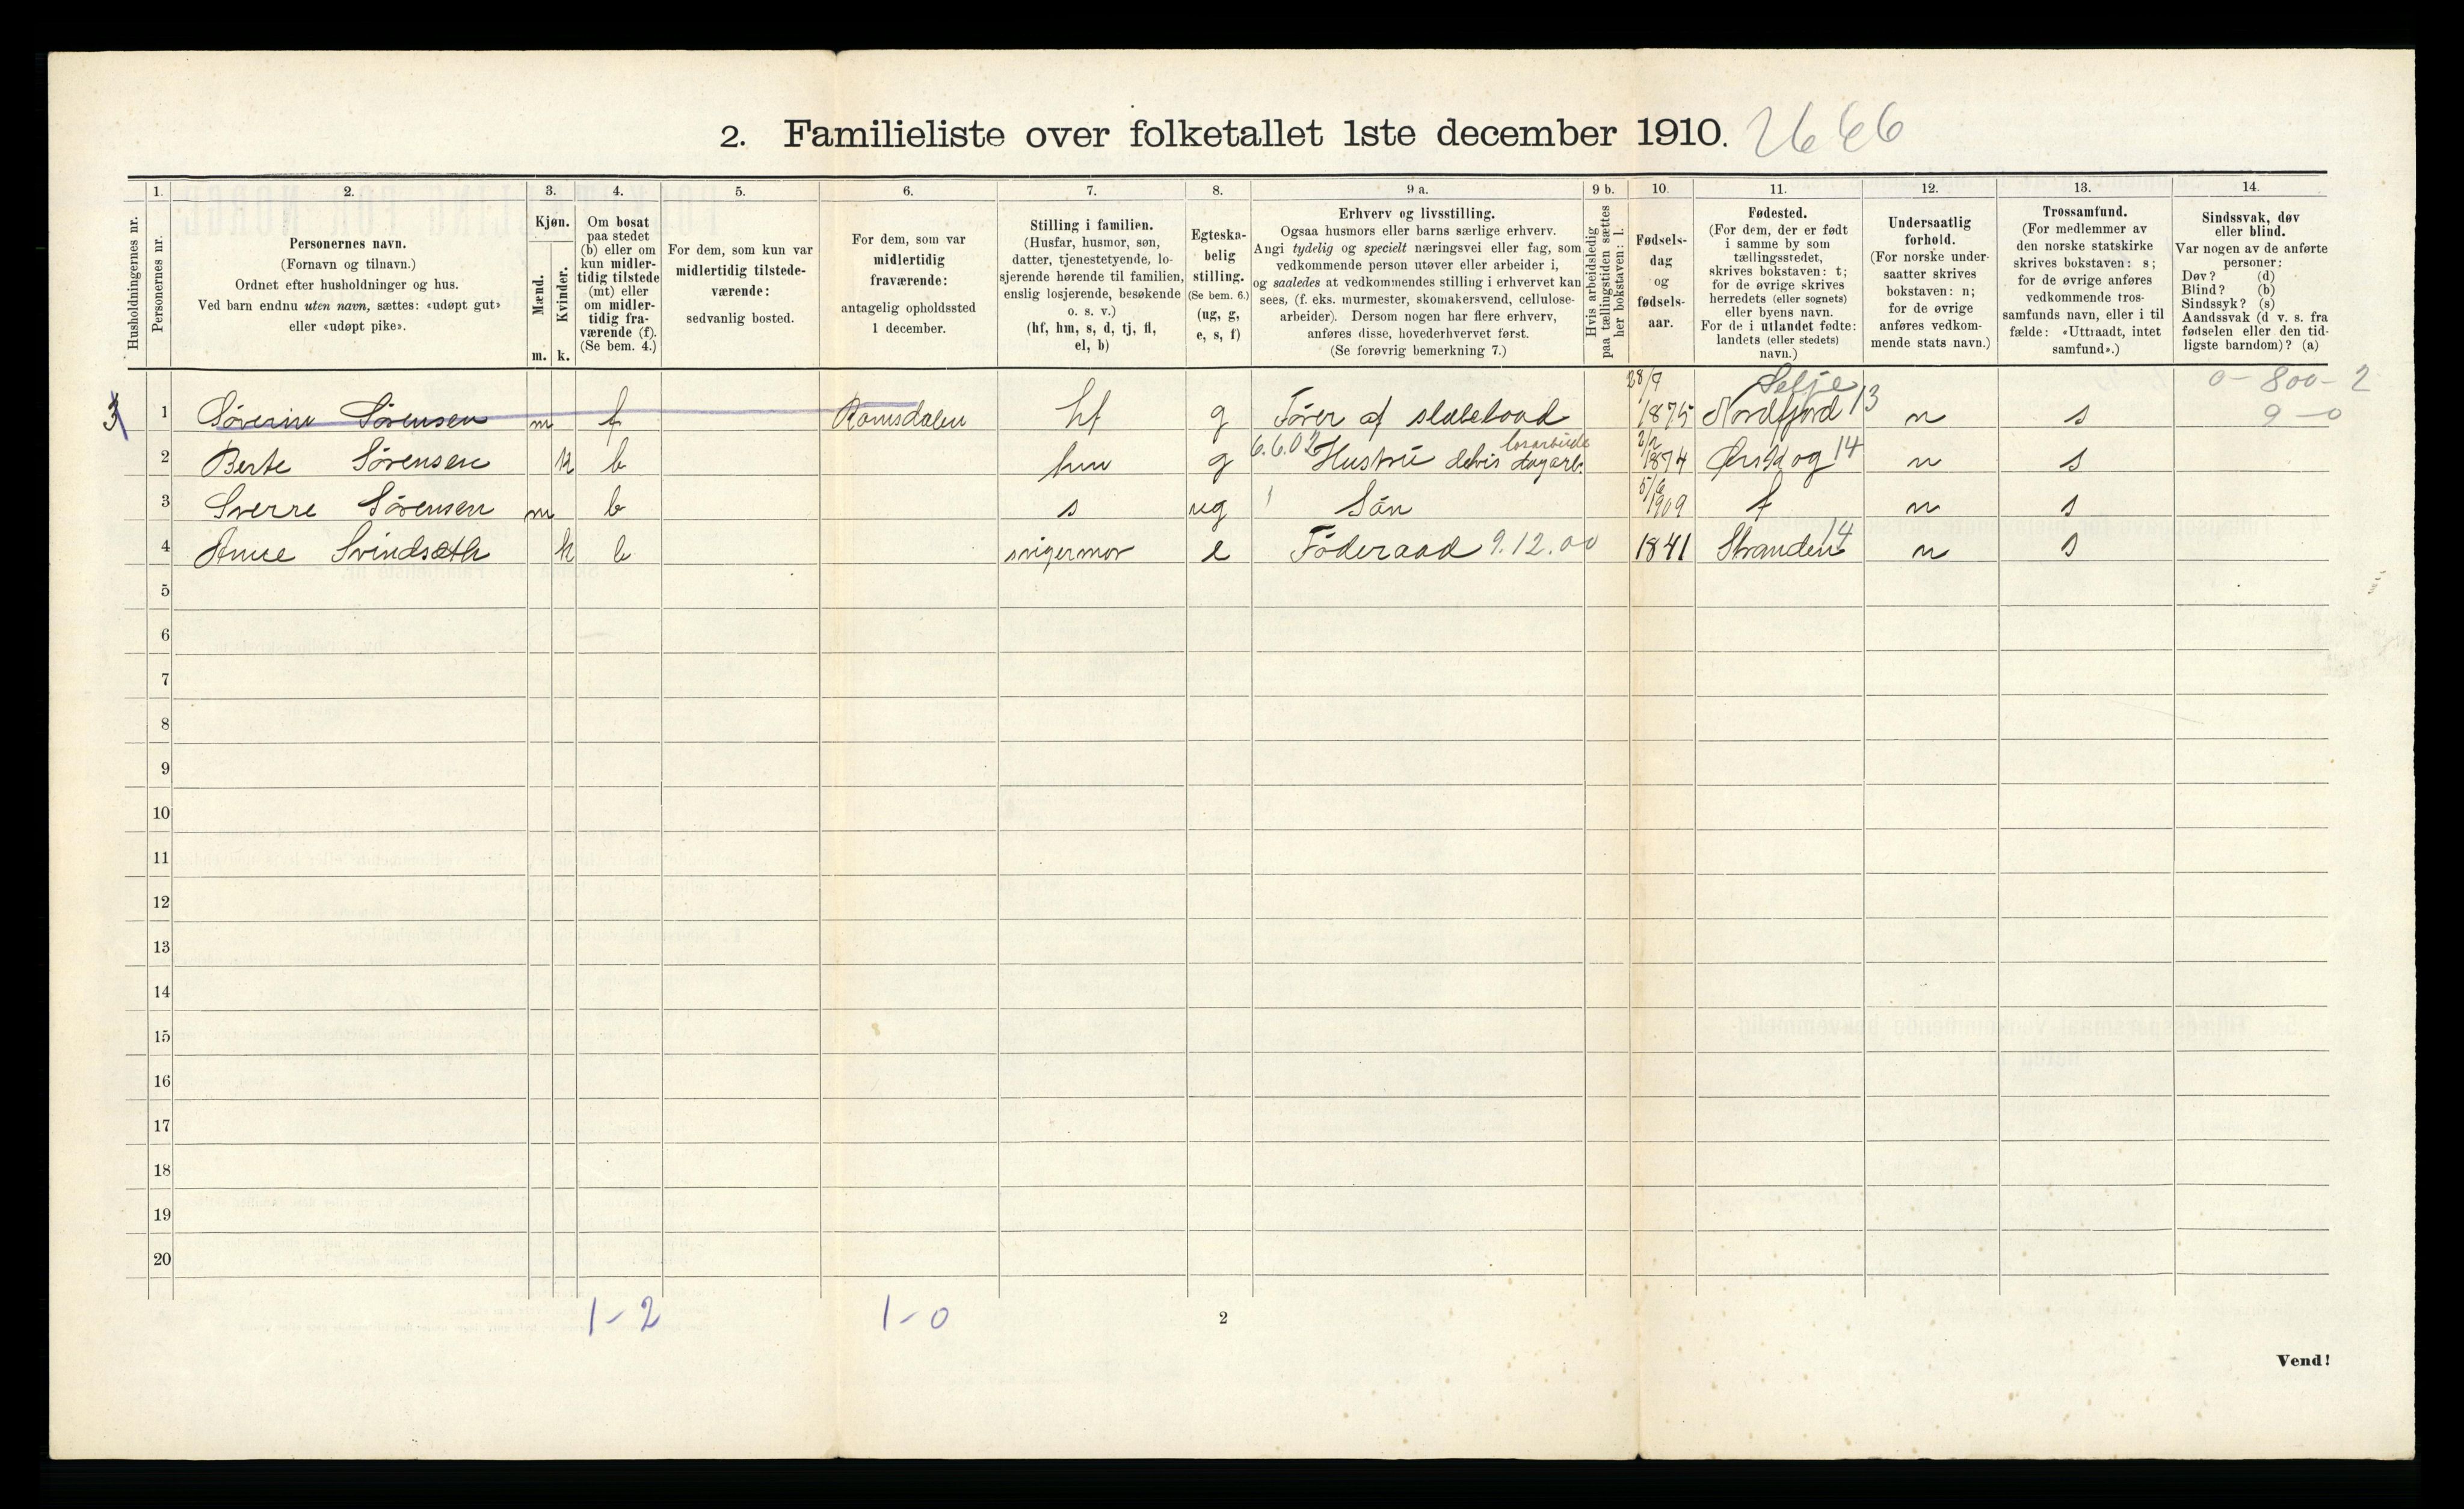 2. Familieliste over folketallet 1ste december 1910. 2666
1. 2. 3. 4. 5. 6. 7. 8. 9 a. 9 b. 10. 11. 12. 13. 14.
Husholdningernes nr.
Personernes nr.
Personernes navn.
(Fornavn og tilnavn.)
Ordnet efter husholdninger og hus.
Ved barn endnu uten navn, sættes: «udøpt gut»
eller «udøpt pike».
Kjøn.
Mænd.
m.
Kvinder.
k.
Om bosat
paa stedet
(b) eller om
kun midler-
tidig tilstede
(mt) eller
om midler-
tidig fra-
værende (f).
(Se bem. 4.)
For dem, som kun var
midlertidig tilstede-
værende:
sedvanlig bosted.
For dem, som var
midlertidig
fraværende:
antagelig opholdssted
1 december.
Stilling i familien.
(Husfar, husmor, søn,
datter, tjenestetyende, lo-
sjerende hørende til familien,
enslig losjerende, besøkende
o. s. v.)
(hf, hm, s, d, tj, fl,
el, b)
Egteska-
belig
stilling.
(Se bem. 6.)
(ug, g,
e, s, f)
Erhverv og livsstilling.
Ogsaa husmors eller barns særlige erhverv.
Angi tydelig og specielt næringsvei eller fag, som
vedkommende person utøver eller arbeider i,
og saaledes at vedkommendes stilling i erhvervet kan
sees, (f. eks. murmester, skomakersvend, cellulose-
arbeider). Dersom nogen har flere erhverv,
anføres disse, hovederhvervet først.
(Se forøvrig bemerkning 7.)
Hvis arbeidsledig
paa tællingstiden sættes
her bokstaven: l.
Fødsels-
dag
og
fødsels-
aar.
Fødested.
(For dem, der er født
i samme by som
tællingsstedet,
skrives bokstaven: t;
for de øvrige skrives
herredets (eller sognets)
eller byens navn.
For de i utlandet fødte:
landets (eller stedets)
navn.)
Undersaatlig
forhold.
(For norske under-
saatter skrives
bokstaven: n;
for de øvrige
anføres vedkom-
mende stats navn.)
Trossamfund.
(For medlemmer av
den norske statskirke
skrives bokstaven: s;
for de øvrige anføres
vedkommende tros-
samfunds navn, eller i til
fælde: «Uttraadt, intet
samfund».)
Sindssvak, døv
eller blind.
Var nogen av de anførte
personer:
Døv? (d)
Blind? (b)
Sindssyk? (s)
Aandssvak (d v. s. fra
fødselen eller den tid-
ligste barndom)? (a)
28/9 Selje 0-800-2
3 1 Søverin Sørensen m f Romsdalen hf g Fører af slæbebaad 1875 Nordfjord 13 n s 9-0
6.6.02 løsarbeide 2/2
2 Berte Sørensen k b hm g Hustru delvis dagarb. 1874 Ørskog 14 n s
5/6
3 Sverre Sørensen m b s ug Sön 1909 t n s
4 Anne Svindseth k b svigermor e Föderaad 9.12.00 1841 Stranden 14 n s
5
6
7
8
9
10
11
12
13
14
15
16
17
18
19
20
1-2 1-0 2
Vend!